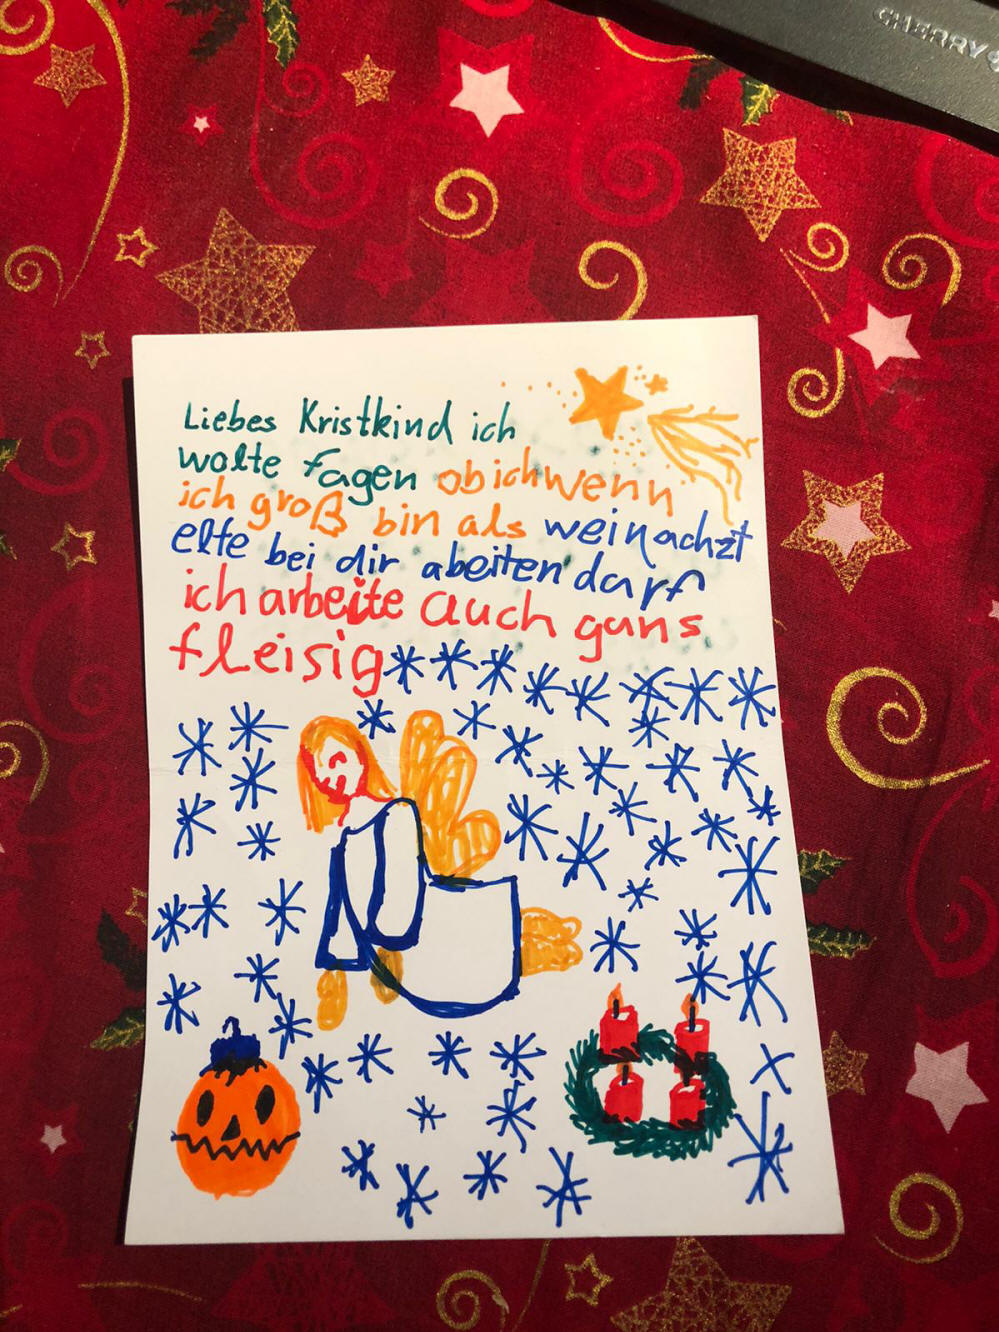 CHERRY
Liebes Kristkind ich
wolte fagen ob ich wenn
ich groß bin als weinachzt
elfe bei dir abeiten darf
ich arbeite auch gans
fleisig